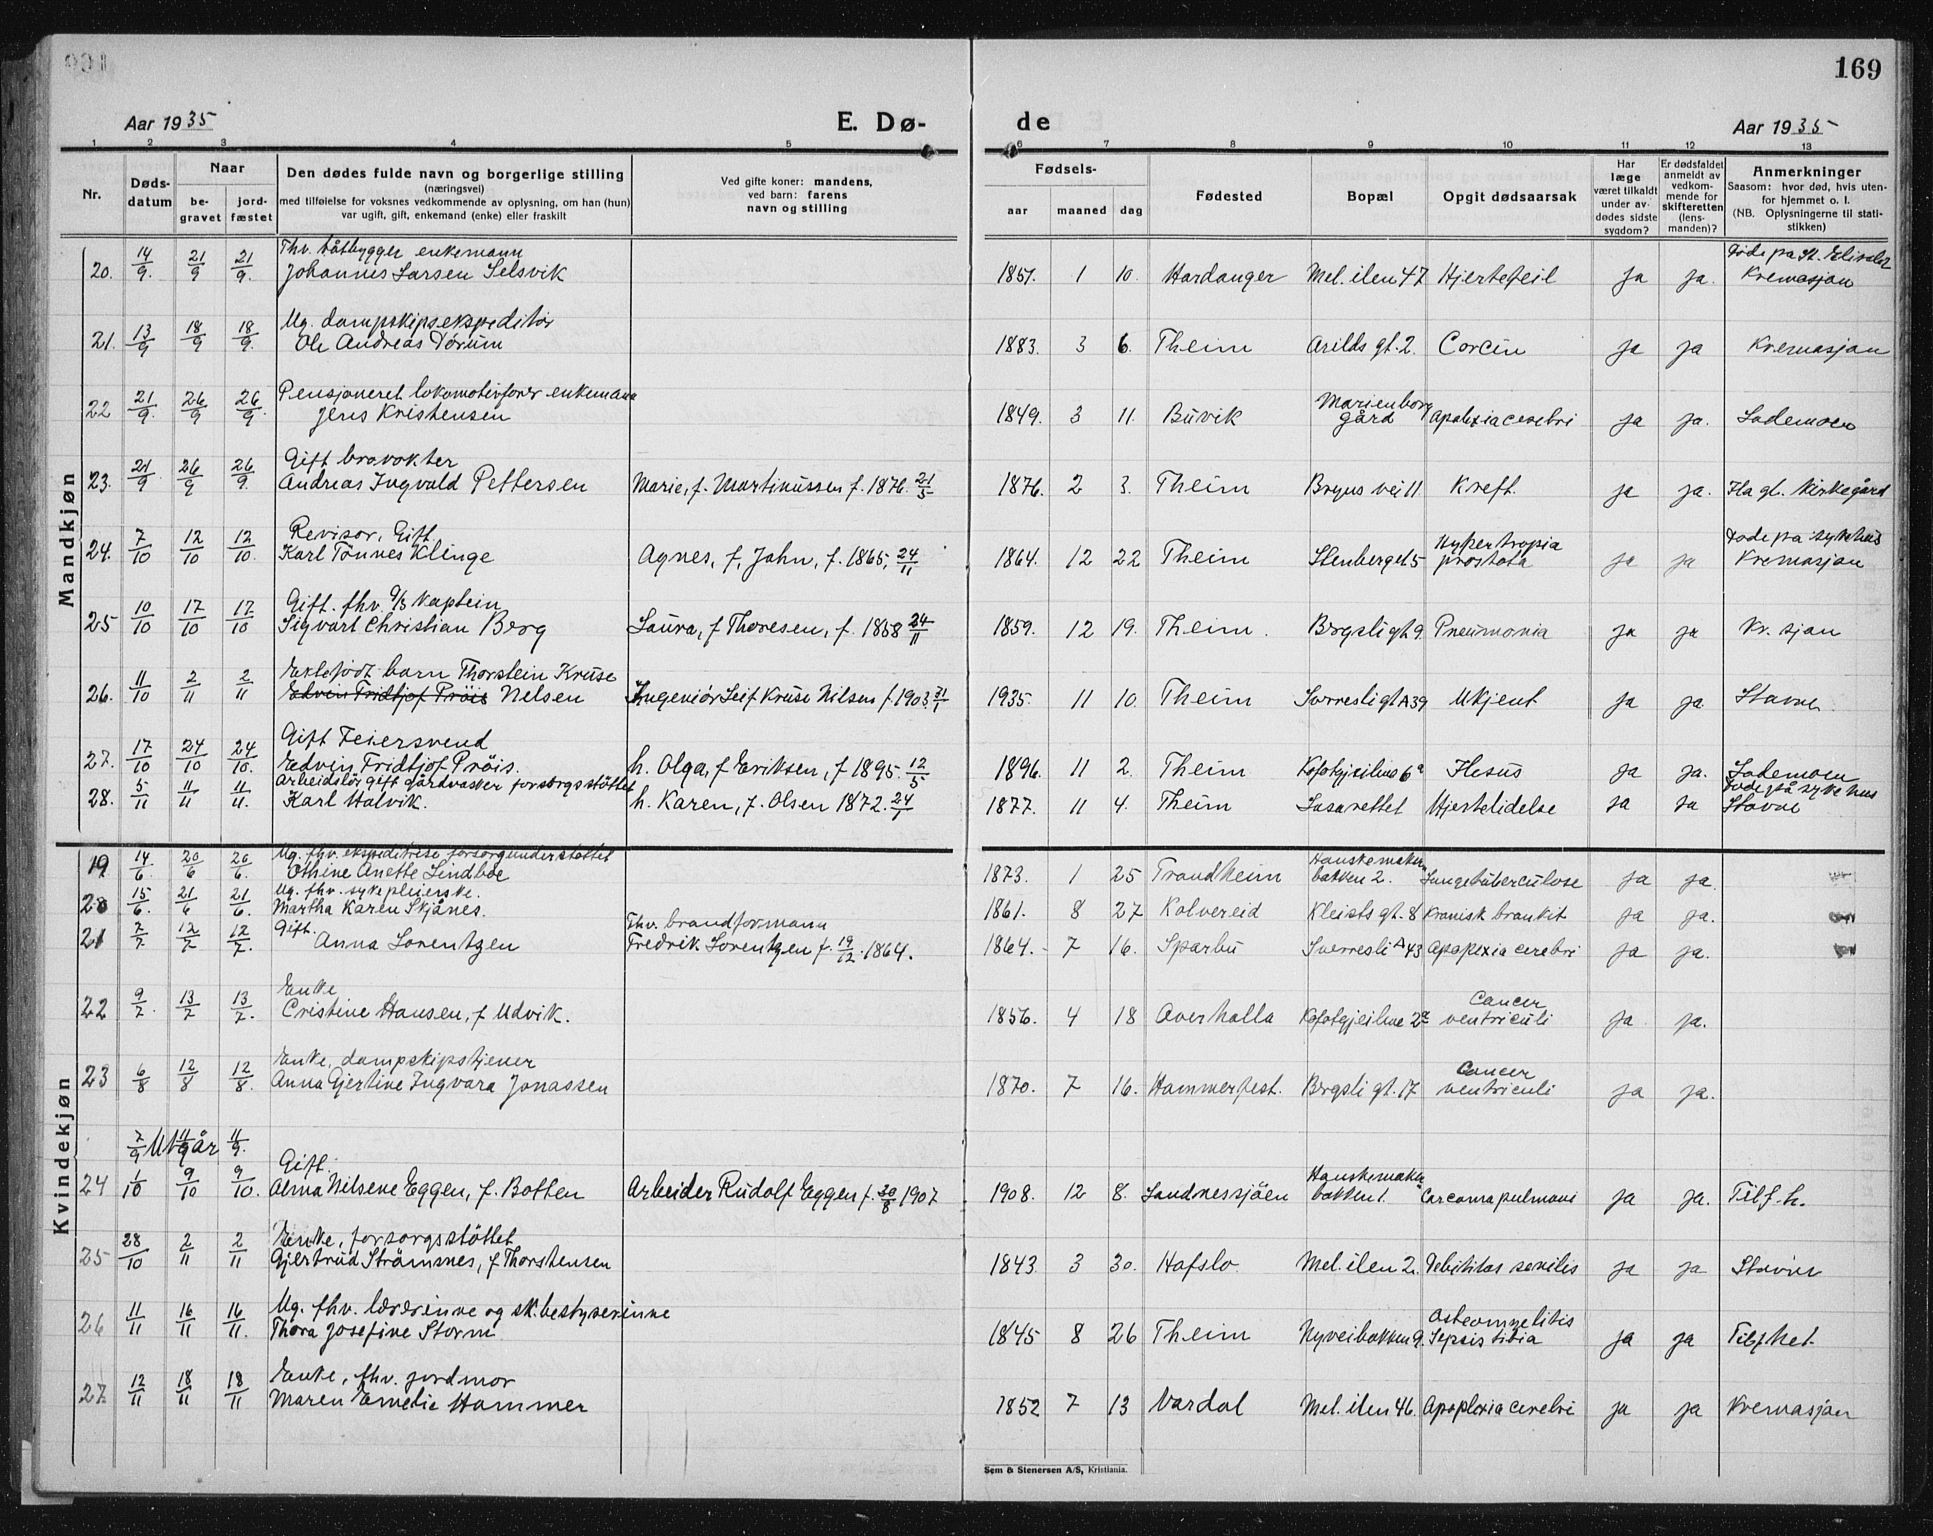 169
Aar 1935
E. Dø-
de
Aar 1935
1 2 3 4 5 6 7 8 9 10 11 12 13
Nr.
Døds-
datum
Naar
be-
gravet
jord-
fæstet
Den dødes fulde navn og borgerlige stilling
(næringsvei)
med tilføielse for voksnes vedkommende av oplysning, om han (hun)
var ugift, gift, enkemand (enke) eller fraskilt
Ved gifte koner: mandens,
ved barn: farens
navn og stilling
Fødsels-
aar maaned dag
Fødested
Bopæl
Opgit dødsaarsak
Har
læge
været tilkaldt
under av-
dødes sidste
sygdom?
Er dødsfaldet
anmeldt av
vedkom-
mende for
skifteretten
(lens-
manden)?
Anmerkninger
Saasom: hvor død, hvis uten-
for hjemmet o. l.
(NB. Oplysningerne til stati-
stikken)
Mandkjøn
Thv. båtbygger enkemann
20. 14/9. 21/9 21/9. Johannes Larsen Selsvik 1851. 1 10. Hardanger Mel. ilen 47 Hjertefeil ja ja. Kremasjon
Ug. dampskipsekspeditør
21. 13/9 18/9 18/9. Ole Andreas Dørum 1883. 3 6. Theim Arilds gt. 2. ja ja Kremasjon
Pensjoneret lokomotivfører enkemann
22 21/9. 26/9 26/9. Jens Kristensen 1849. 3 11. Buvik Marienborg gård Apoplexia cerebri ja ja. Lademoen
Gift
23. 21/9 26/9 26/9. Andreas Ingvald Pettersen Marie, f. Martinussen f. 1876. 21/5 1876. 2 3. Theim Bryns vei 11 Kreft. ja ja. Ila gl. kirkegård
Revisor, Gift
24. 7/10 12/10 12/10. Karl Tønnes Klinge Agnes, f. Jahn, f. 1865, 24/11 1864. 12 22 Theim Stenberggt 5 Hypertropia prostata ja ja Døde på sykehus Kremasjon
Gift. fhv. d/s kaptein
25 10/10 17/10 17/10 Sigvart Christian Berg Laura, f Thoresen, f. 1858 24/11 1859. 12 19. Theim. Bergsligt 9. Pneumonia ja ja Kr. sjon
Ektefødt barn Thorstein Kruse
26. 11/10 2/11 2/11 Edvin Fridtjof Prøis Nelsen Ingeniør Leif Kruse Nilsen f. 1903. 31/1 1935. 11 10. Theim Sverresligt A39 Ukjent ja ja Stavne
Gift Feiersvend
27. 17/10 24/10 24/10. Edvin Fridtjof Prøis. h. Olga, f Eriksen, f 1895. 12/5 1896. 11 2. Theim Kofotgjeilene 6a Ilesus ja ja. Lademoen
Arbeidsløs gift gårdvasker forsorgsstøttet
28. 5/11 11/11 11/11. Karl Halvik. h. Karen, f. Olsen 1872. 24/1 1877. 11 4. Theim Lasarettet Hjertelidelse ja ja Døde på sykehus Stavne
Kvindekjøn
Ug. fhv. ekspeditrise forsorgunderstøttet
19 14/6. 20/6 20/6. Othine Anette Lindboe 1873. 1 25 Trondheim Hanskemakerbakken 2. Lungetuberculose ja ja.
Ug. fhv. sykepleierske.
20 15/6. 21/6 21/6. Martha Karen Skjånes. 1861. 8 27 Kolvereid Kleists gt. 8 Kronisk bronkit ja ja.
Gift. Fhv. brandformann
21 7/7. 12/7 12/7. Anna Lorentzen Fredrik Lorentzen f. 19/12. 1864. 1864. 7 16. Sparbu Sverresli A 43 Apoplexia cerebri ja ja.
Enke
22 9/7. 13/7 13/7. Cristine Hansen, f Udvik. 1856. 4 18 Overhalla Kofotgjeilene 2 Cancer ventriculi ja ja.
Enke, dampskipstjener
23 6/8 12/8 12/8. Anna Gjertine Ingvara Jonassen 1870. 7 16. Hammerfest. Bergsli gt. 17 Cancer ventriculi ja ja.
7/9 Utgår 11/9 11/9.
Gift.
24 1/10 9/10 9/10. Alma Nilsene Eggen, f. Botten Arbeider Rudolf Eggen f. 30/8 1907 1908. 12 8. Sandnessjøen Hanskemakerbakken 1. Carcoma pulmoni ja ja. Tilf. h.
Enke, forsorgsstøttet
25 28/10 2/11 2/11 Gjertrud Strømsnes, f Thorstensen 1843 3 30. Hafslo. Mel. ilen 2. Debilitas senilis ja ja Stavne
Ug. fhv. lærerinne og sk.bestyrerinne
26 11/11 16/11 16/11. Thora Josefine Storm 1845 8 26 Theim Nyveibakken 9. Osteomyelitis Sepsis tibia ja ja Tilf. ket.
Enke, fhv. jordmor
27. 12/11 18/11 18/11 Maren Emelie Hammer 1852 7 13 Vardal Mel. ilen 46. Apoplexia cerebri ja ja Kremasjon
Sem & Stenersen A/S, Kristiania.